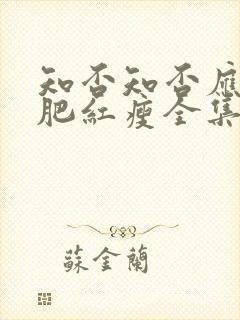 知否知否應
肥紅瘦全集
蘇金蘭